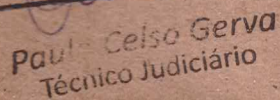 Celso Gerva
Técnico Judiciário